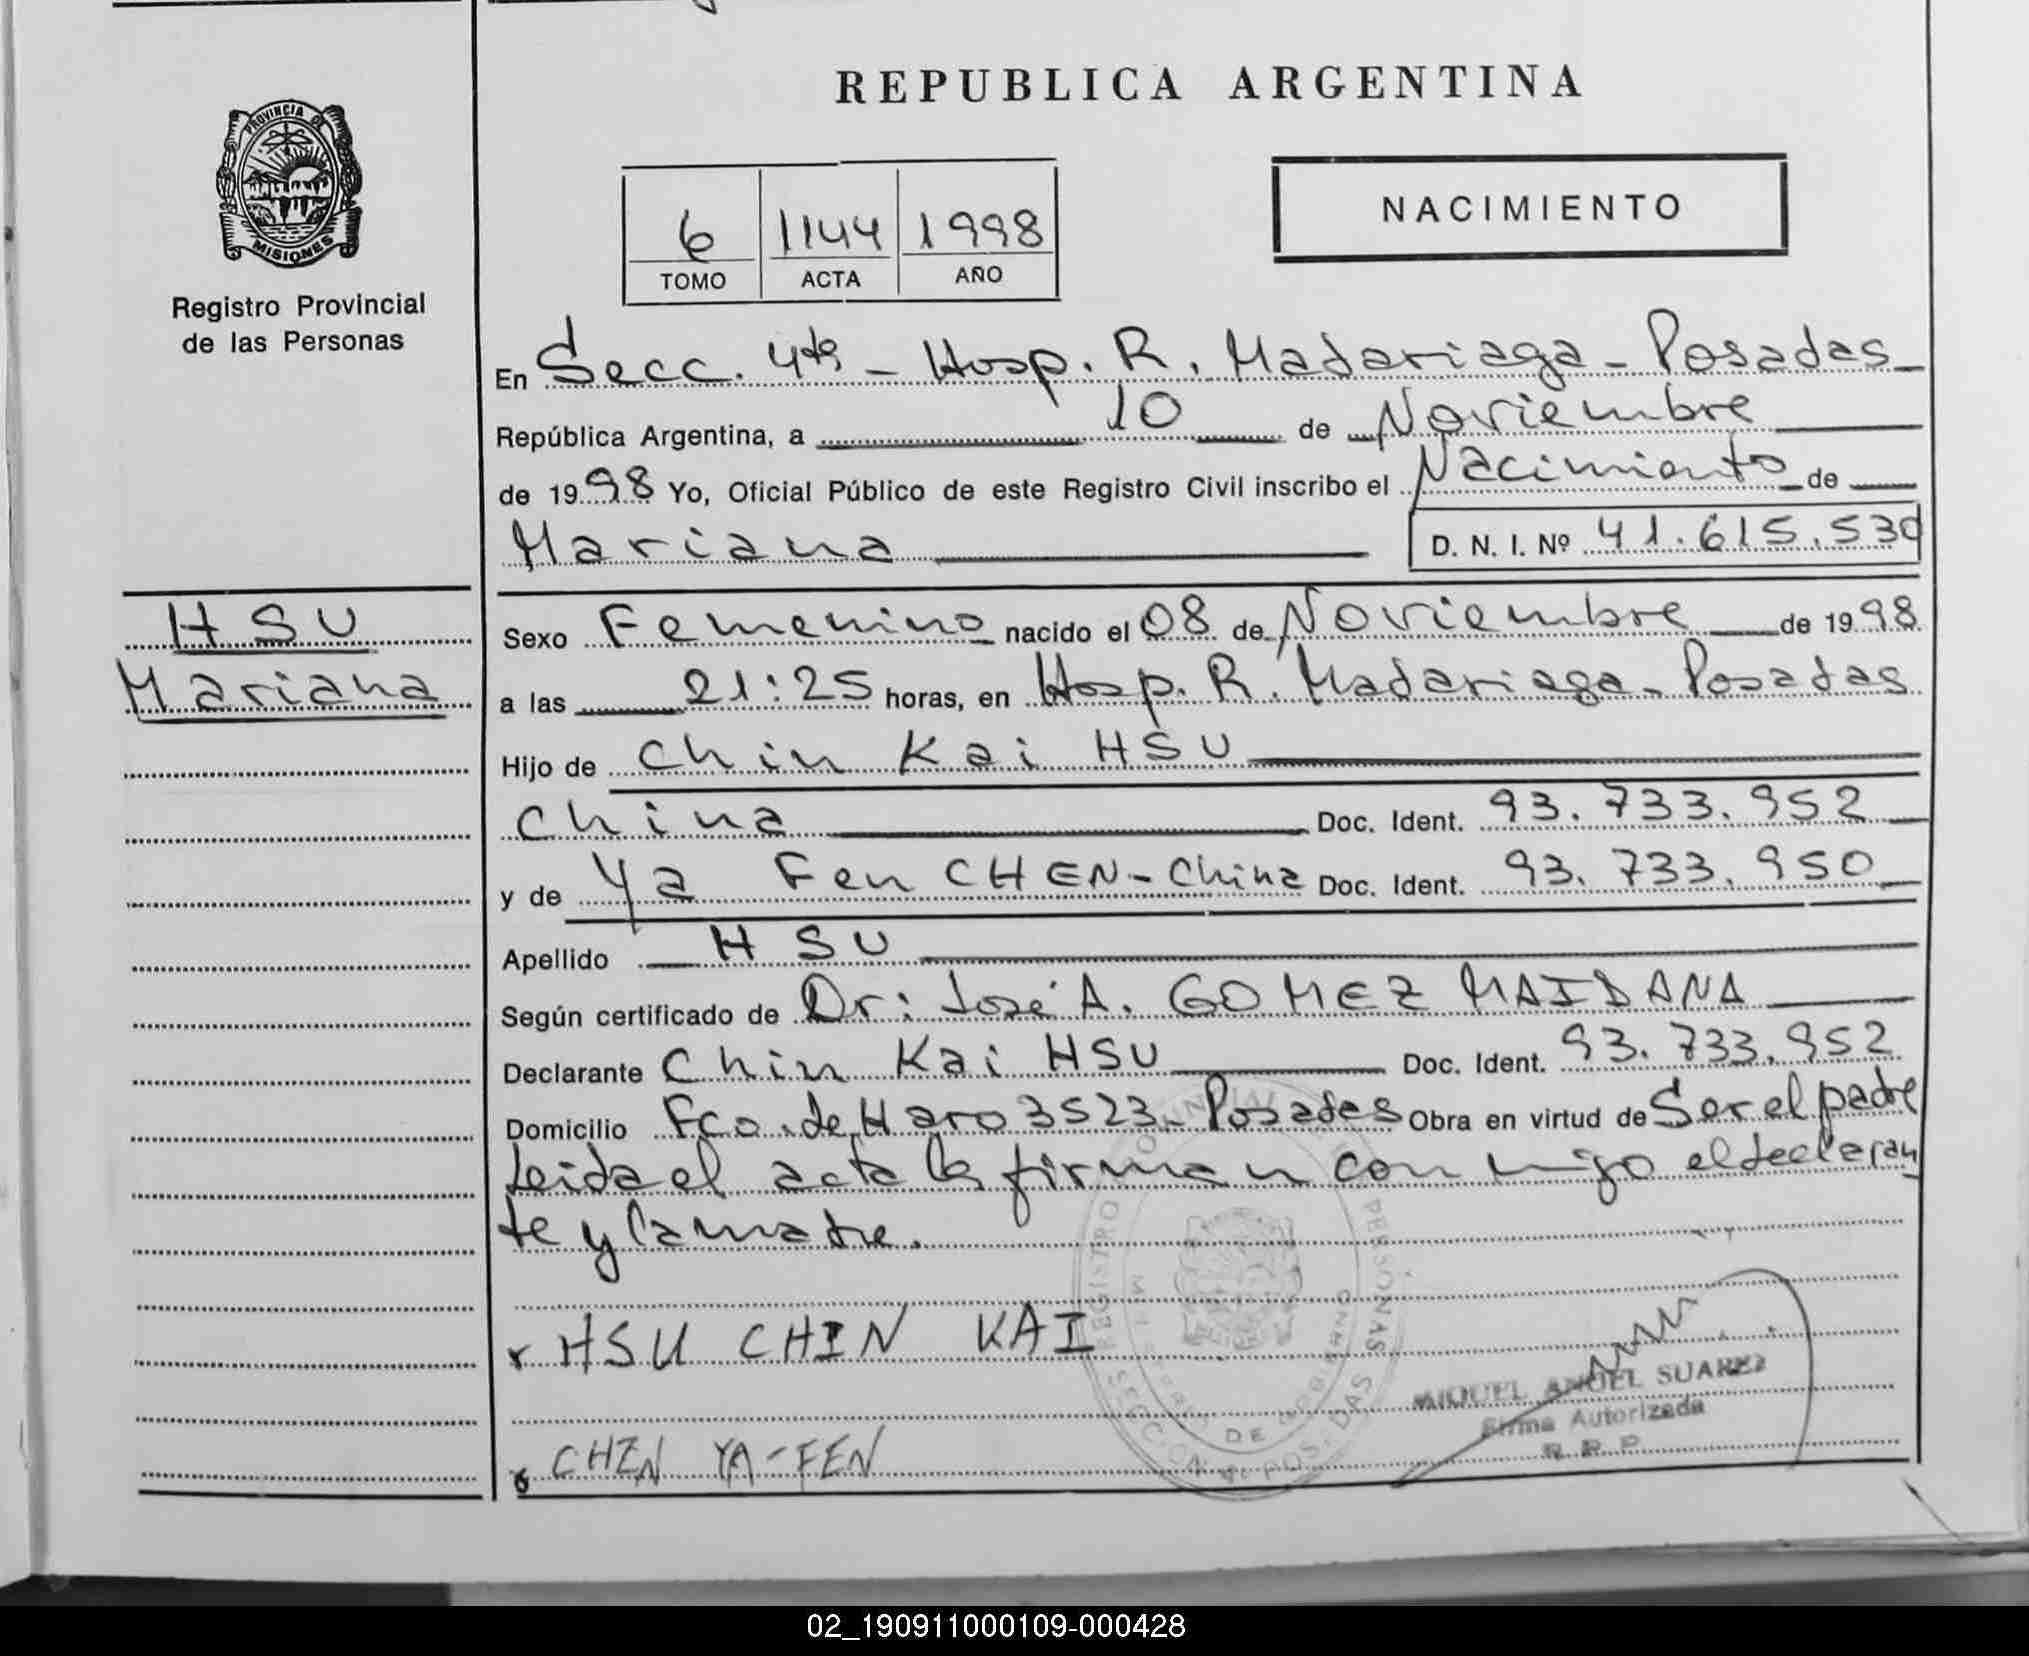 REPUBLICA ARGENTINA
PROVINCIA DE
MISIONES
Registro Provincial
de las Personas
6 1144 1998
TOMO ACTA AÑO
NACIMIENTO
En Secc. 4ta - Hosp. R. Madariaga - Posadas
República Argentina, a 10 de Noviembre
de 1998 Yo, Oficial Público de este Registro Civil inscribo el Nacimiento de
Mariana D. N. I. Nº 41.615.530
HSU
Mariana
Sexo Femenino nacido el 08 de Noviembre de 1998
a las 21:25 horas, en Hosp. R. Madariaga - Posadas
Hijo de Chin Kai HSU
China Doc. Ident. 93.733.952
y de Ya Fen CHEN - China Doc. Ident. 93.733.950
Apellido HSU
Según certificado de Dr: José A. GOMEZ MAIDANA
Declarante Chin Kai HSU Doc. Ident. 93.733.952
Domicilio Fco. de Haro 3523 - Posadas Obra en virtud de Ser el padre
Leida el acta la firman conmigo el declaran
te y la madre.
HSU CHIN KAI
CHEN YA-FEN
REGISTRO PROVINCIAL DE PERSONAS
MIGUEL ANGEL SUAREZ
Firma Autorizada
R.P.P
02_190911000109-000428